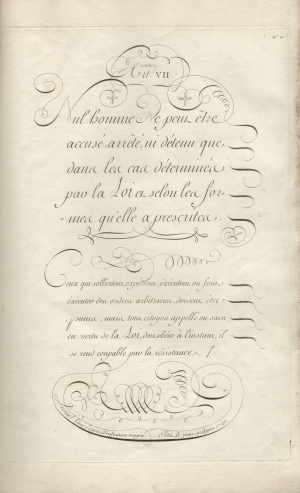 Art. VII
Nul homme Ne peut être
accusé, arrêté, ni détenu que
dans les cas déterminés
par la Loi et selon les for-
mes qu'elle a prescrites.
Ceux qui sollicitent, expédient, exécutent ou font
exécuter des ordres arbitraires, doivent être
punis; mais tout citoyen appellé ou saisi
en vertu de la Loi, doit obéir à l'instant; il
se rend coupable par la résistance.